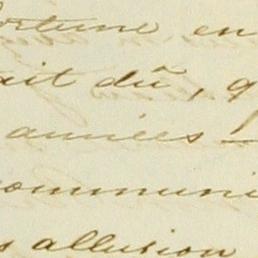 fortune en
ait dû, q
années —
communi
s allusion